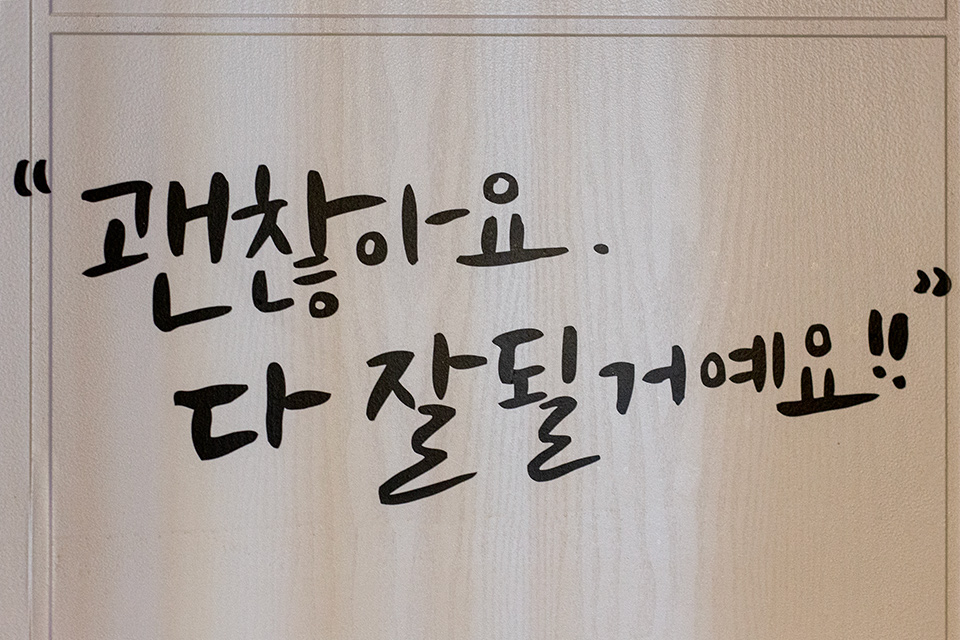 “괜찮아요.
다 잘될거예요!!”